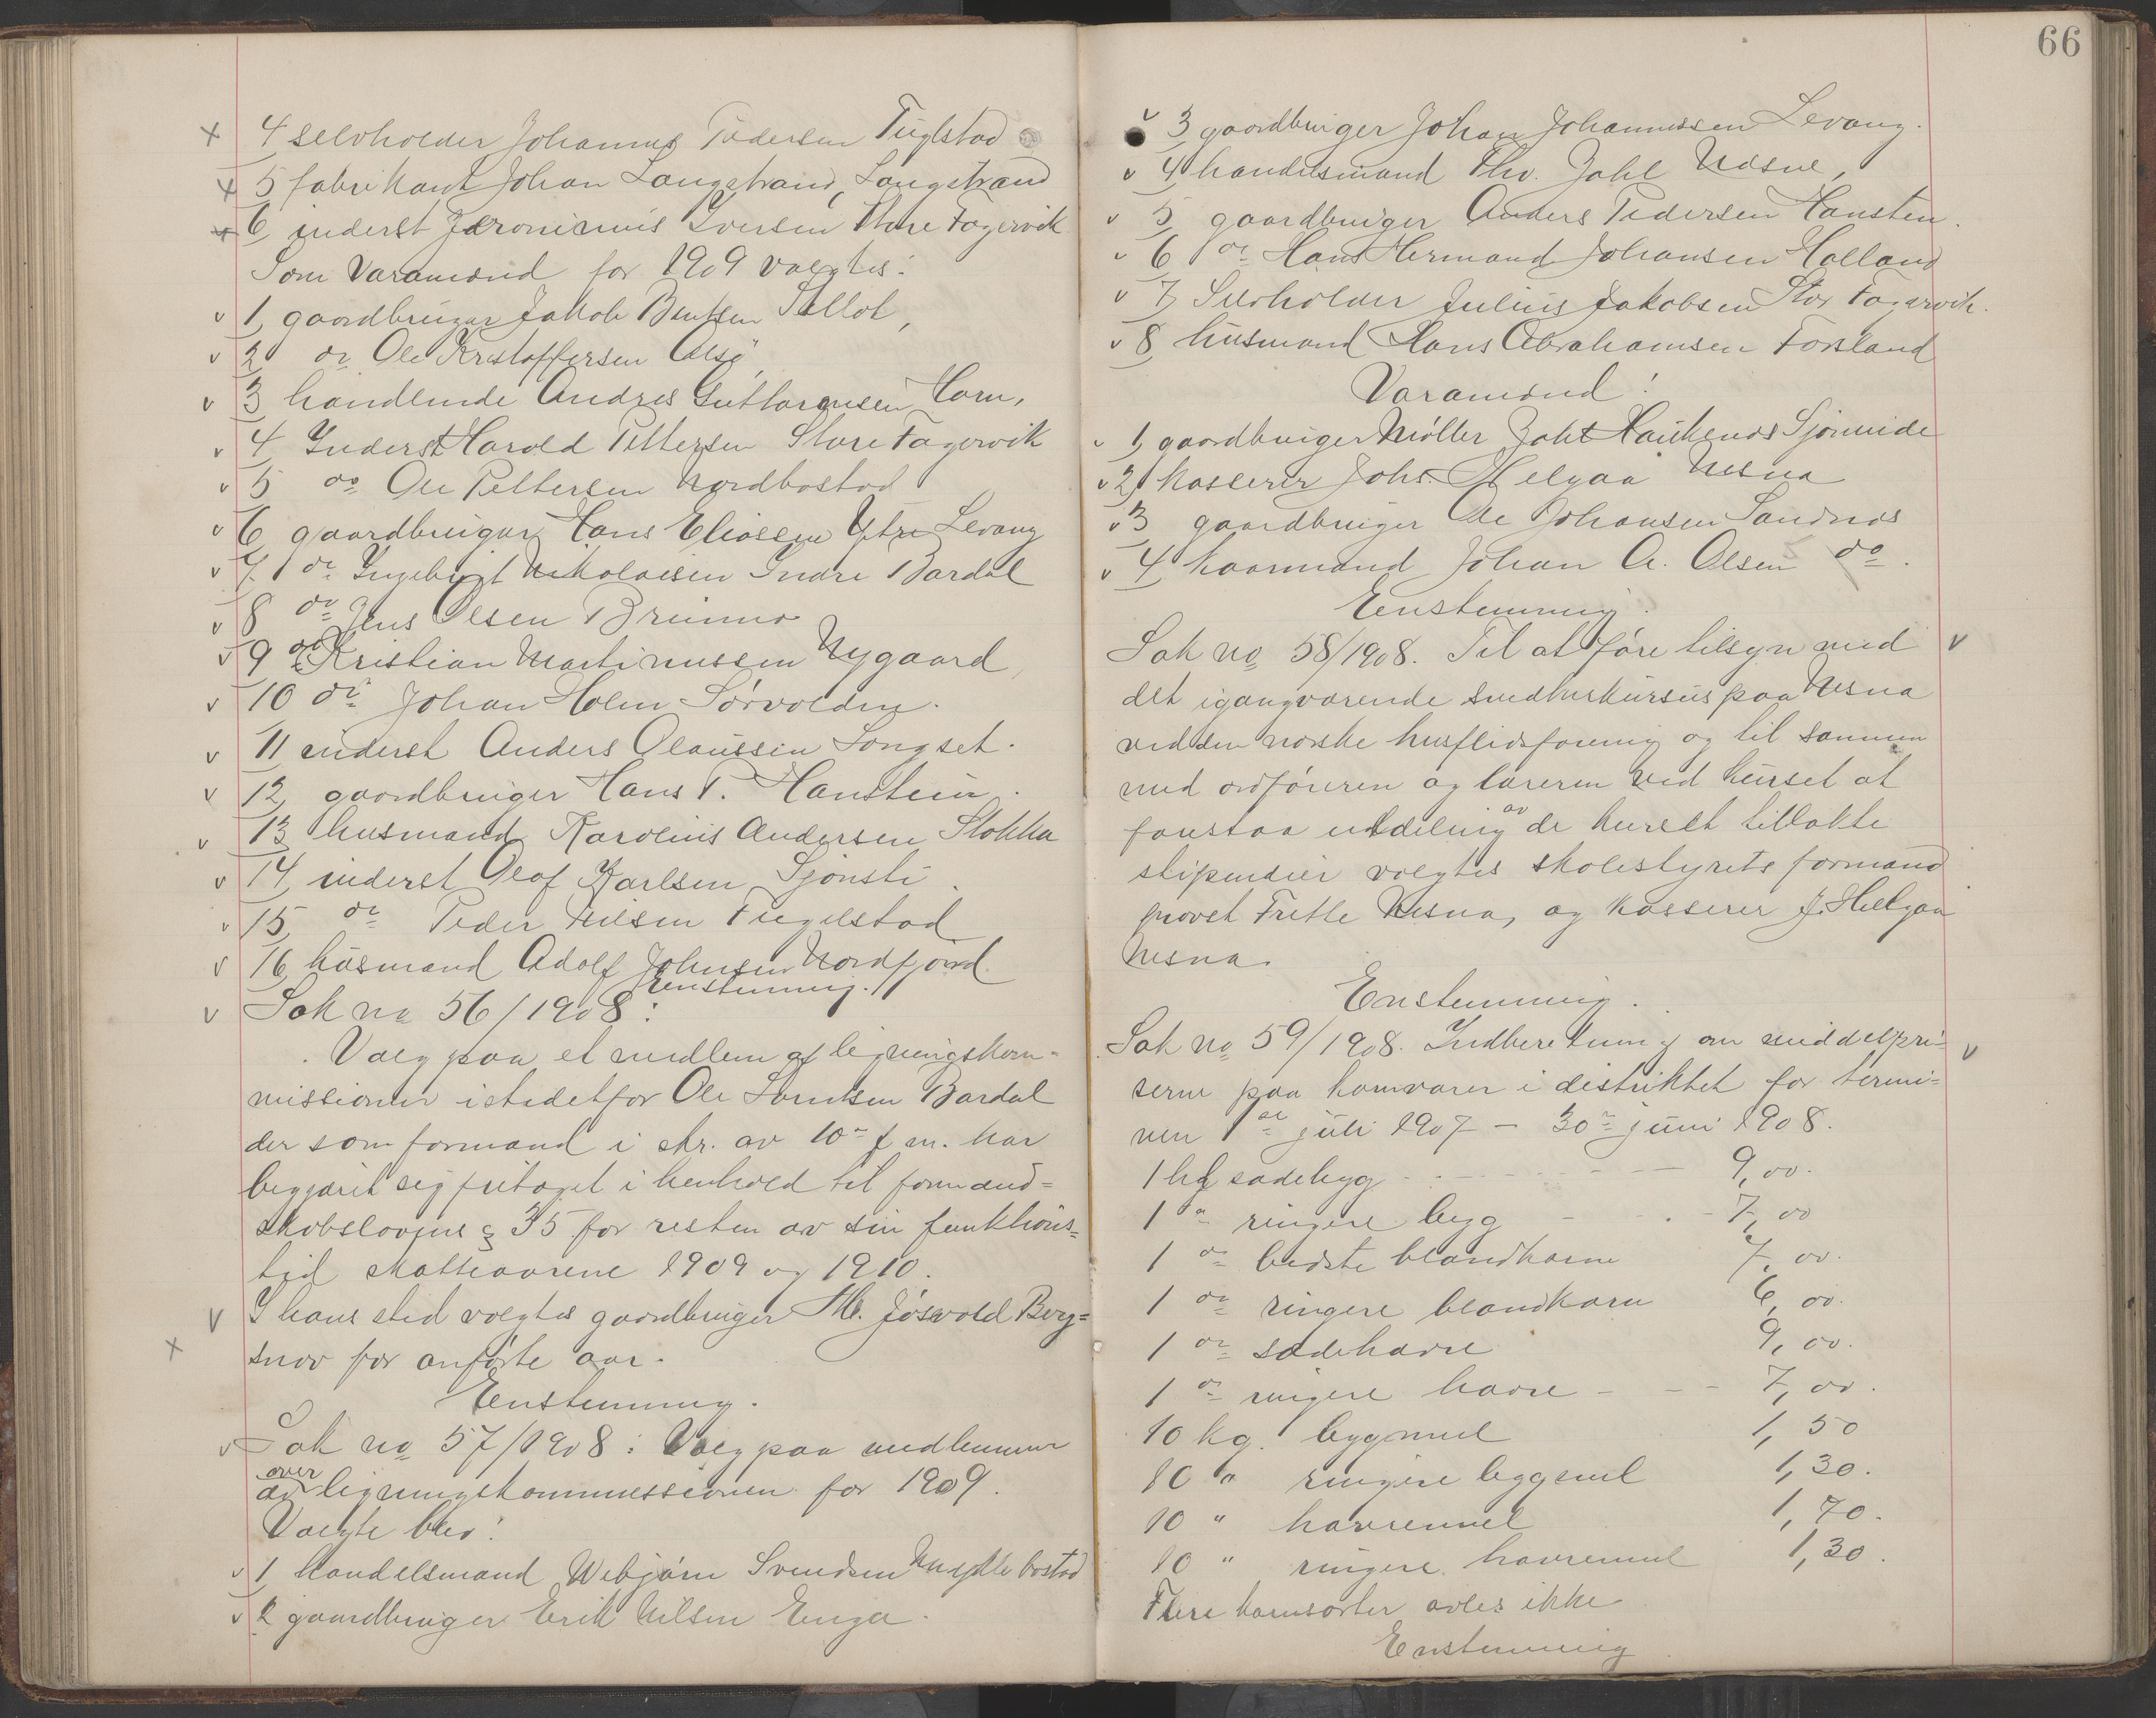 4 selvholder Johannes Pedersen Fuglstad
5 fabrikant Johan Langstrand, Langstrand
6 inderst Jeronimus Iversen Store Fagervik
Som Varamænd for 1909 valgtes:
1, gaardbruger Jakob Bentsen
2 do Ole Kristoffersen Alsø
3 handlende Andreas Guttormsen Horn,
4 Inderst Harald Pettersen Store Fagervik
5 do Ole Pettersen Nordbostad
6 gaardbruger Hans Eliassen Ytre Levang
7. do Ingebrigt Nikolaisen Indre Bardal
8 do Jens Olsen
9 do Kristian Martinussen Nygaard,
10 do Johan Holm Sørvolden.
11 inderst Anders Olaussen Langset.
12, gaardbruger Hans P. Hanstein.
13 husmand Karolius Andersen Stokka
14, inderst Olaf Karlsen Sjonsti.
15, do Peder Nilsen Fuglstad
16, husmand Adolf Johnsen Nordfjord.
Enstemmig.
Sak no 56/1908:
Valg paa et medlem af ligningskom-
missionen istedetfor Ole Larntsen Bardal
der som formand i skr. av 10de f. m. har
begjæret sig fritaget i henhold til formand-
skabslovens § 35 for resten av sin funktions-
tid skatteaarene 1909 og 1910.
I hans sted valgtes gaardbruger M. Jøsvold Berg-
snov for anførte aar.
Enstemmig.
Sak no 57/1908: Valg paa medlemmer
over
av ligningskommissionen for 1909.
Valgte blev:
1 handelsmand Webjørn Svendsen bostad
2 gaardbruger Erik Nilsen Enga.
66
3, gaardbruger Johan Johannessen Levang.
4, handelsmand Thv. Jahl Næsne,
5, gaardbruger Anders Pedersen Hansten.
6 do Hans Hermand Johansen Halland
7, Selvholder Julius Jakobsen Stor Fagervik.
8, husmand Hans Abrahamsen Forsland
Varamænd!
1, gaardbruger Møller Haukenes Sjonnide
2, kasserer Johs. Helgaa Nesna
3 gaardbruger Ole Johansen Sandnes
4, haarmand Johan A. Olsen do.
Enstemmig.
Sak no 58/1908. Til at føre tilsyn med
det igangværende snedkerkursus paa Nesna
ved den norske husflidsforening og til sammen
med ordføreren og læreren ved kurset at
av
forestaa utdeling de kurset tillakte
stipendier valgtes skolestyrets formand
provst Fritte Nesna, og kasserer J. Helgaa
Nesna.
Enstemmig.
Sak no 59/1908. Indberetning om middelpri-
serne paa kornvarer i distriktet for termi-
nen 1ste juli 1907 – 30te juni 1908.
1 hl sædebyg 9,00.
1 " ringere byg 7,00
1 do bedste blandkorn 7,00.
1 do ringere blandkorn 6,00.
1 do sædehavre 9,00.
1 do ringere havre 7,00.
10 kg. bygmel 1,50
10 " ringere bygmel 1,30.
10 " havremel 1,70.
10 " ringere havremel 1,30.
Flere kornsorter avles ikke
Enstemmig